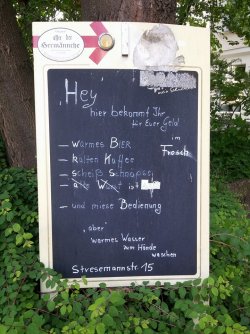 "Hey"
hier bekommt Ihr
für Euer Geld
im
Frosch
– warmes BIER
– kalten Kaffee
– scheiß Schnäpse
– alte Wurst ist
– und miese Bedienung
"aber"
warmes Wasser
zum Hände
waschen
Stresemannstr. 15